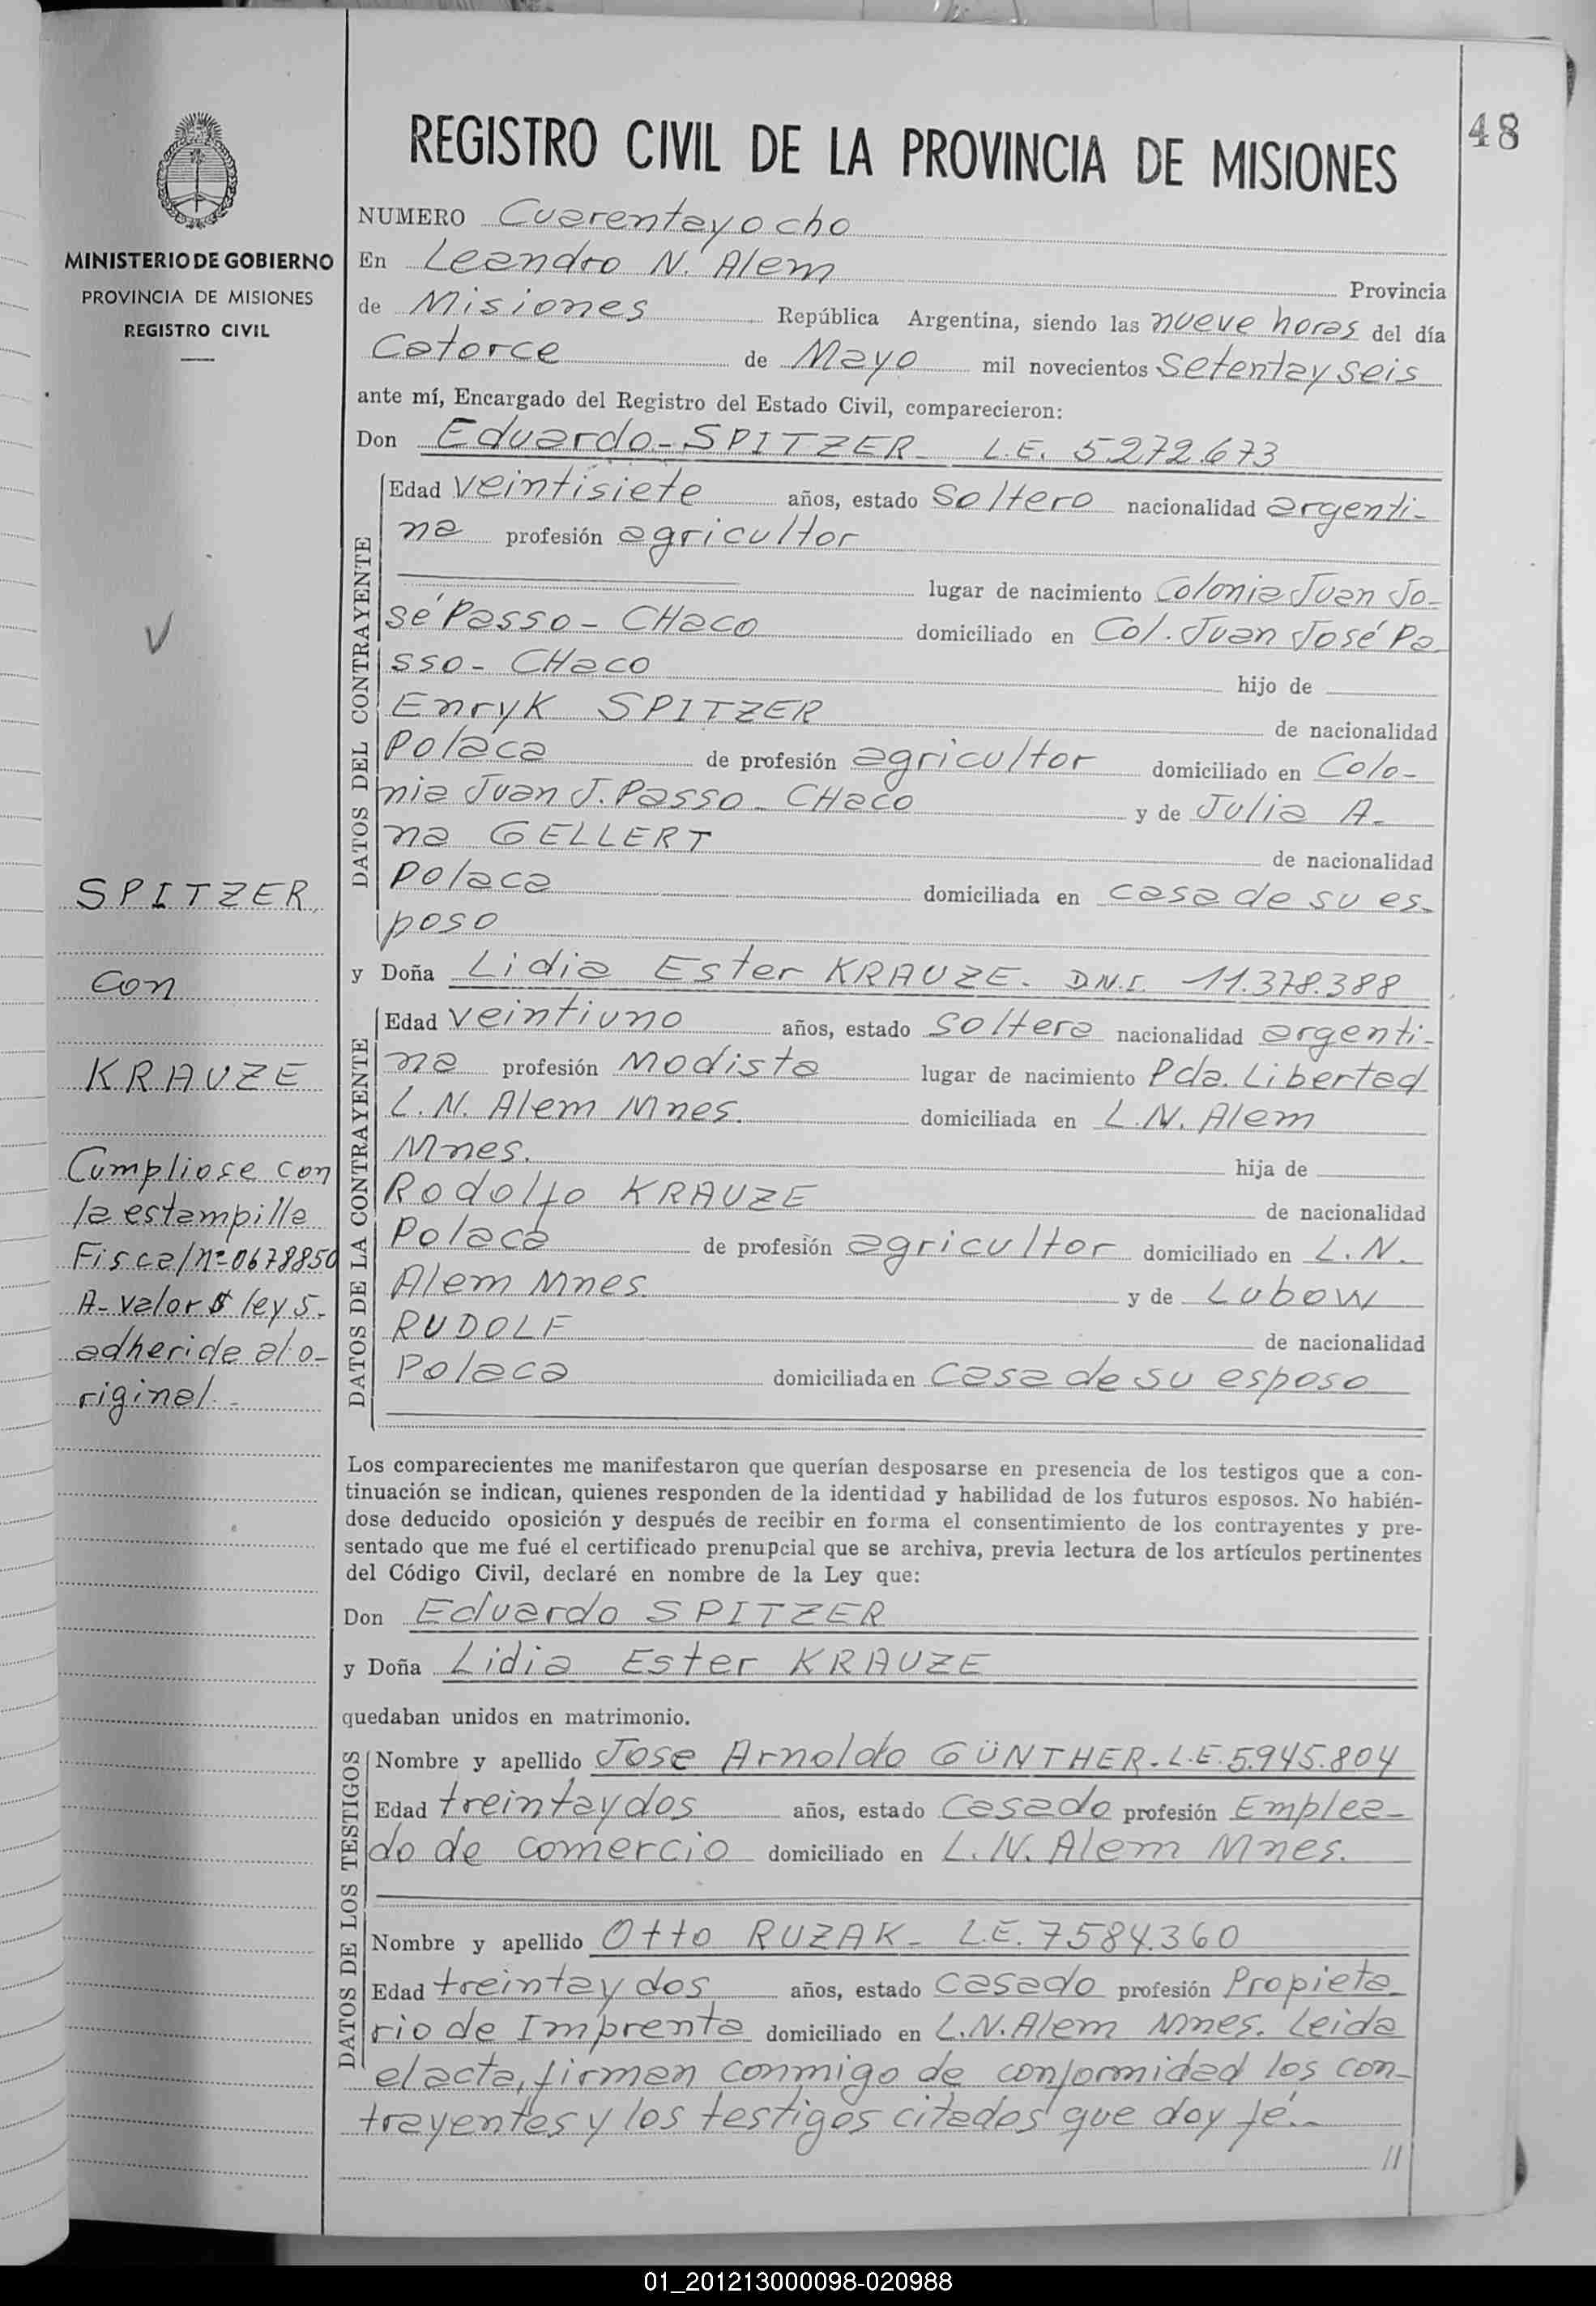 48
REGISTRO CIVIL DE LA PROVINCIA DE MISIONES
MINISTERIO DE GOBIERNO
PROVINCIA DE MISIONES
REGISTRO CIVIL
NUMERO Cuarentayocho
En Leandro N. Alem Provincia
de Misiones República Argentina, siendo las nueve horas del día
Catorce de Mayo mil novecientos setentayseis
ante mí, Encargado del Registro del Estado Civil, comparecieron:
Don Eduardo - SPITZER - L.E. 5.272.673
DATOS DEL CONTRAYENTE
Edad veintisiete años, estado soltero nacionalidad argenti-
na profesión agricultor
lugar de nacimiento Colonia Juan Jo-
sé Passo - CHaco domiciliado en Col. Juan José Pa-
sso - CHaco hijo de
Enryk SPITZER de nacionalidad
Polaca de profesión agricultor domiciliado en Colo-
nia Juan J. Passo - CHaco y de Julia A-
na GELLERT de nacionalidad
Polaca domiciliada en casa de su es-
poso
y Doña Lidia Ester KRAUZE. D.N.I. 11.378.388
DATOS DE LA CONTRAYENTE
Edad veintiuno años, estado soltera nacionalidad argenti-
na profesión Modista lugar de nacimiento Pda. Libertad
L.N. Alem Mnes. domiciliada en L.N. Alem
Mnes. hija de
Rodolfo KRAUZE de nacionalidad
Polaca de profesión agricultor domiciliado en L.N.
Alem Mnes. y de Lubow
RUDOLF de nacionalidad
Polaca domiciliada en casa de su esposo
SPITZER
con
KRAUZE
Cumpliose con
la estampilla
Fiscal nº 0678850
A- valor $ ley 5.-
adherida al o-
riginal.-
Los comparecientes me manifestaron que querían desposarse en presencia de los testigos que a con-
tinuación se indican, quienes responden de la identidad y habilidad de los futuros esposos. No habién-
dose deducido oposición y después de recibir en forma el consentimiento de los contrayentes y pre-
sentado que me fué el certificado prenupcial que se archiva, previa lectura de los artículos pertinentes
del Código Civil, declaré en nombre de la Ley que:
Don Eduardo SPITZER
y Doña Lidia Ester KRAUZE
quedaban unidos en matrimonio.
DATOS DE LOS TESTIGOS
Nombre y apellido Jose Arnoldo GÜNTHER - L.E. 5.945.804
Edad treintaydos años, estado Casado profesión Emplea-
do de comercio domiciliado en L.N. Alem Mnes.
Nombre y apellido Otto RUZAK - L.E. 7584.360
Edad treintaydos años, estado casado profesión Propieta-
rio de Imprenta domiciliado en L.N. Alem Mnes. Leida
el acta, firman conmigo de conformidad los con-
trayentes y los testigos citados que doy fé.-
//
01_201213000098-020988